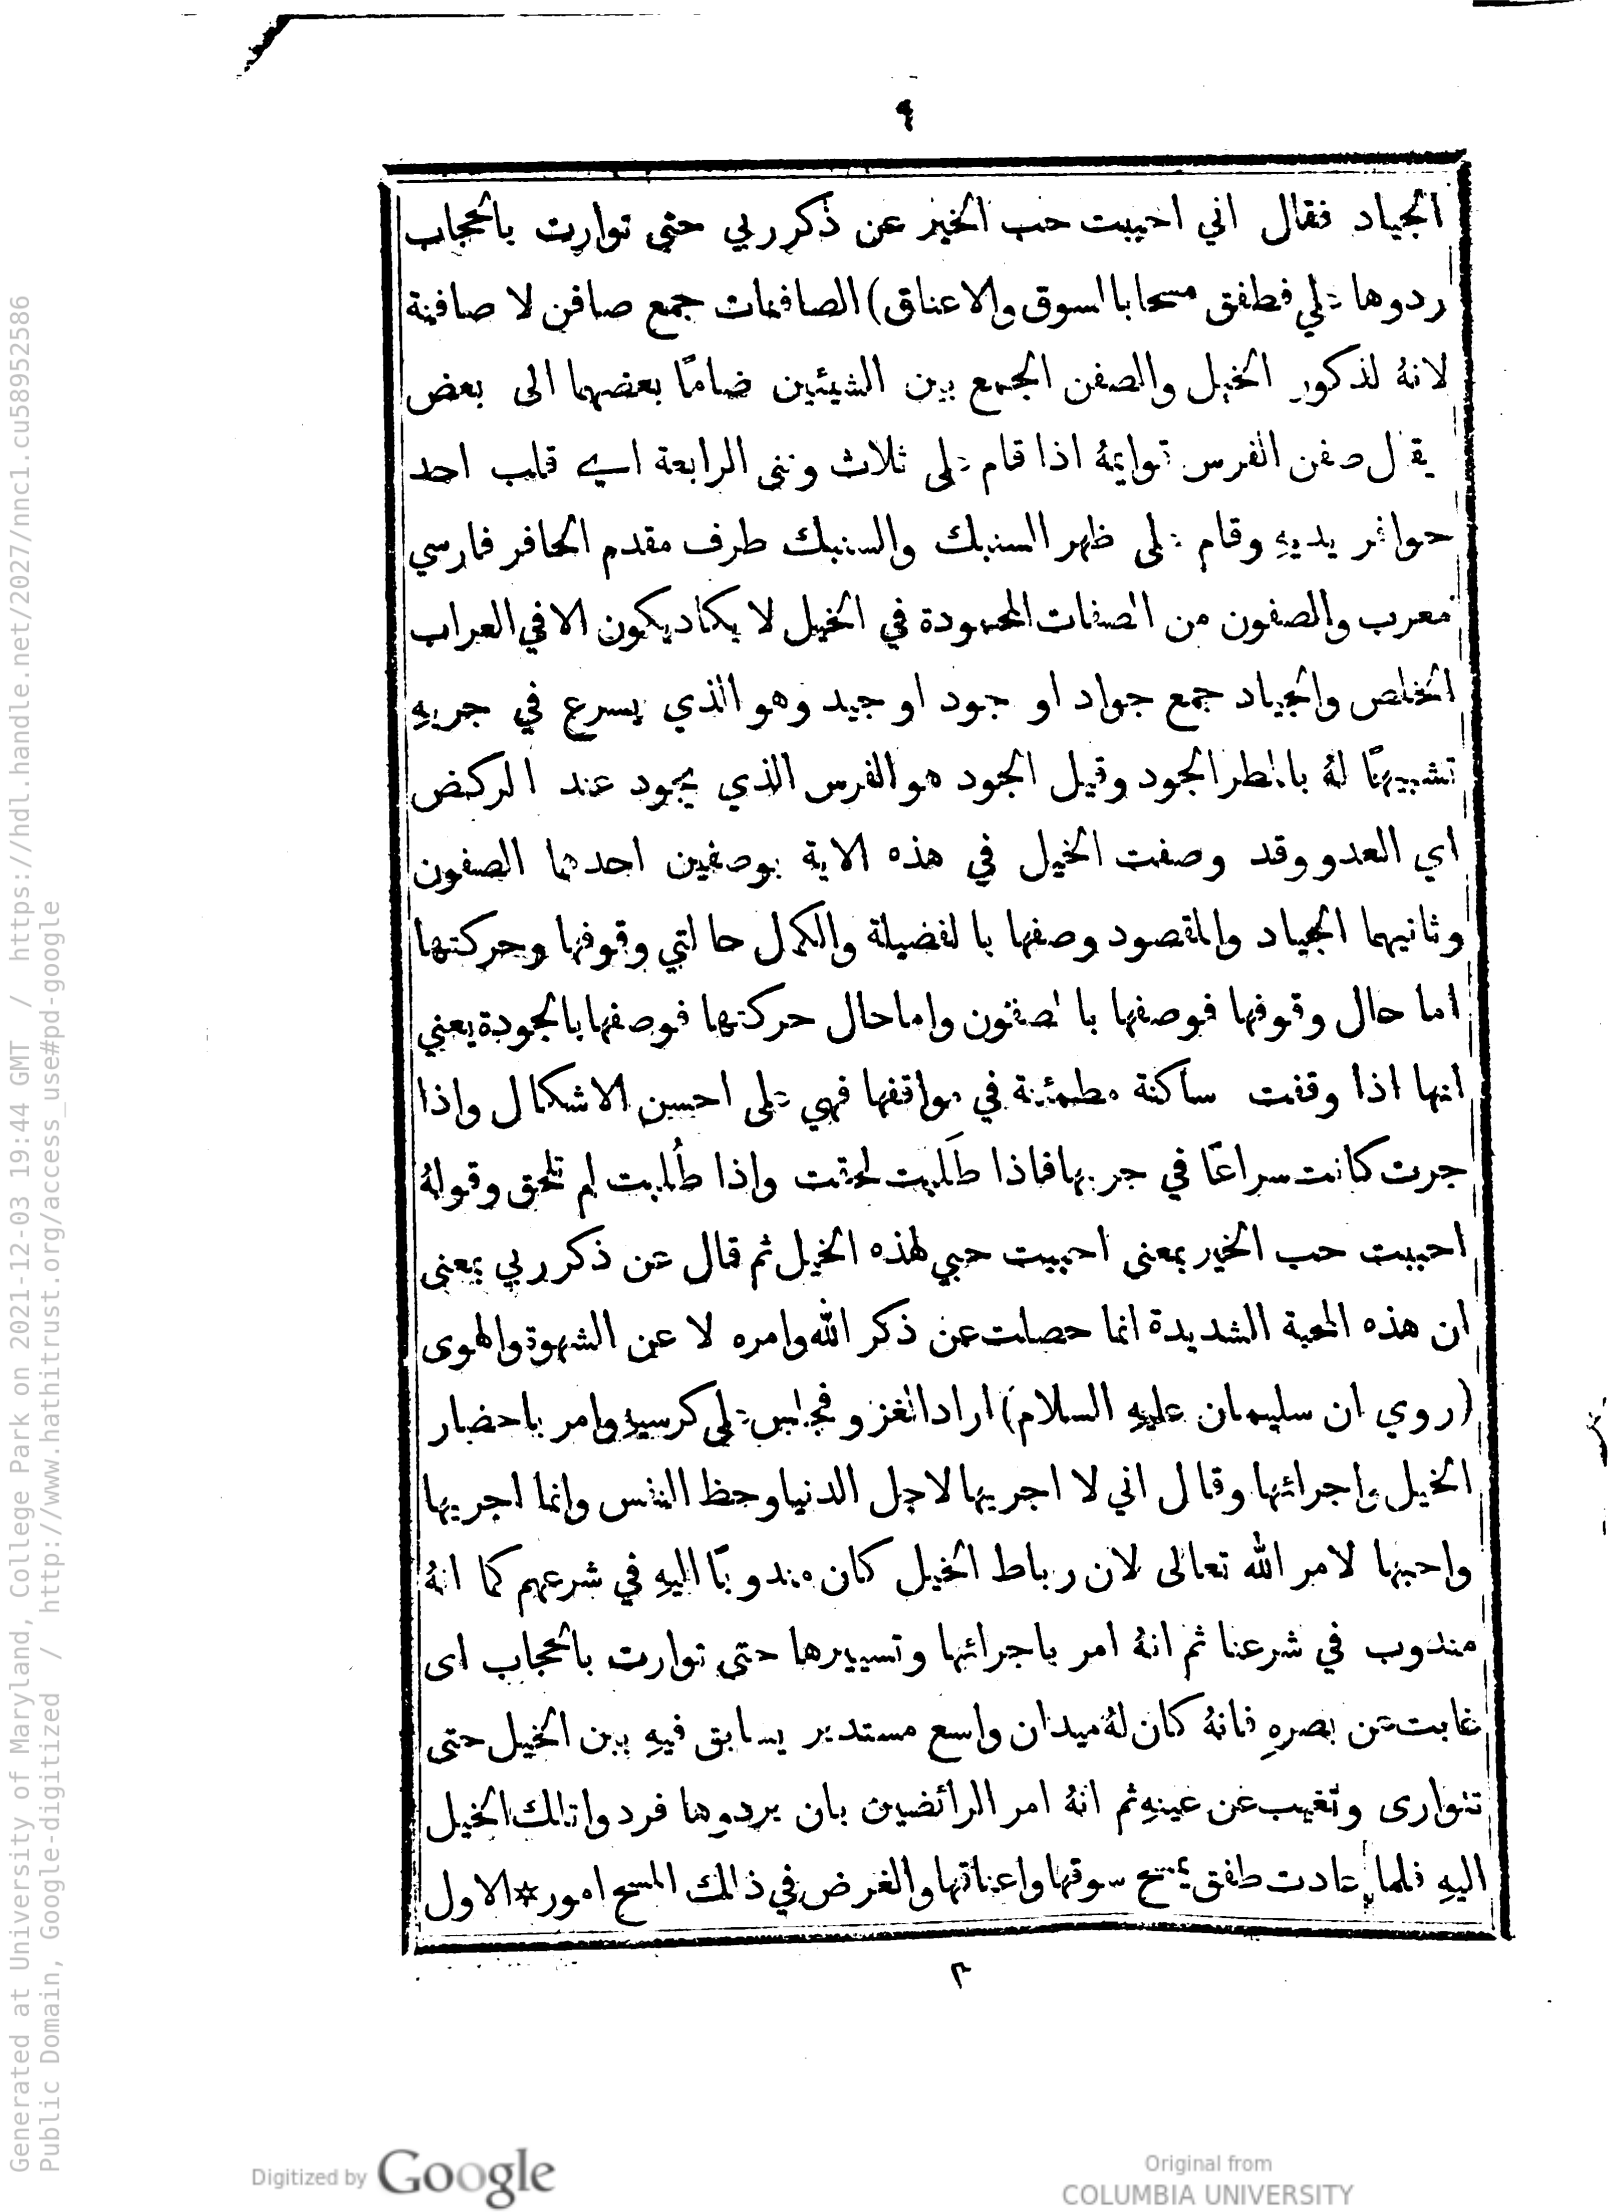 ٩
الجياد فقال اني احببت حب الخير عن ذكر ربي حتى توارت بالحجاب
ردوها علي فطفق مسحا باالسوق والاعناق) الصافنات جمع صافن لا صافنة
لانهُ لذكور الخيل والصفن الجمع بين الشيئين ضامًا بعضهما الى بعض
يقال صفن الفرس قوايمهُ اذا قام على ثلاث وثنى الرابعة اي قلب احد
حوافر يديهِ وقام على ظهر السنبك والسنبك طرف مقدم الحافر فارسي
معرب والصفون من الصفات المحمودة في الخيل لا يكاد يكون الا في العراب
الخلص والجياد جمع جواد او جود او جيد وهو الذي يسرع في جريهِ
تشبيهًا لهُ بالمطر الجود وقيل الجود هو الفرس الذي يجود عند الركض
اي العدو وقد وصفت الخيل في هذه الاية بوصفين احدهما الصفون
وثانيهما الجياد والمقصود وصفها با لفضيلة والكمال حا لتي وقوفها وحركتها
اما حال وقوفها فوصفها با لصفون واما حال حركتها فوصفها بالجودة يعني
انها اذا وقفت ساكنة مطمئنة في مواقفها فهي على احسن الاشكال واذا
جرت كانت سراعًا في جريها فاذا طَلبت لحقت واذا طُلبت لم تلحق وقولهُ
احببت حب الخير بمعنى احببت حبي لهذه الخيل ثم قال عن ذكر ربي بمعنى
ان هذه المحبة الشديدة انما حصلت عن ذكر الله وامره لا عن الشهوة والهوى
(روي ان سليمان عليهِ السلام) اراد الغزو فجلس على كرسيهِ وامر باحضار
الخيل واجرائها وقال اني لا اجريها لاجل الدنيا وحظ النفس وانما اجريها
واحبها لامر الله تعالى لان رباط الخيل كان مندوبًا اليهِ في شرعهم كما انهُ
مندوب في شرعنا ثم انهُ امر باجرائها وتسييرها حتى توارت بالحجاب اى
غابت عن بصرهِ فانهُ كان لهُ ميدان واسع مستدير يسابق فيهِ بين الخيل حتى
تتوارى وتغيب عن عينهِ ثم انهُ امر الرائضين بان يردوها فردوا تلك الخيل
اليهِ فلما عادت طفق يمسح سوقها واعناقها والغرض في ذالك المسح امور * الاول
٢
Generated at University of Maryland, College Park on 2021-12-03 19:44 GMT / https://hdl.handle.net/2027/nnc1.cu58952586
Public Domain, Google-digitized / http://www.hathitrust.org/access_use#pd-google
Digitized by Google
Original from
COLUMBIA UNIVERSITY